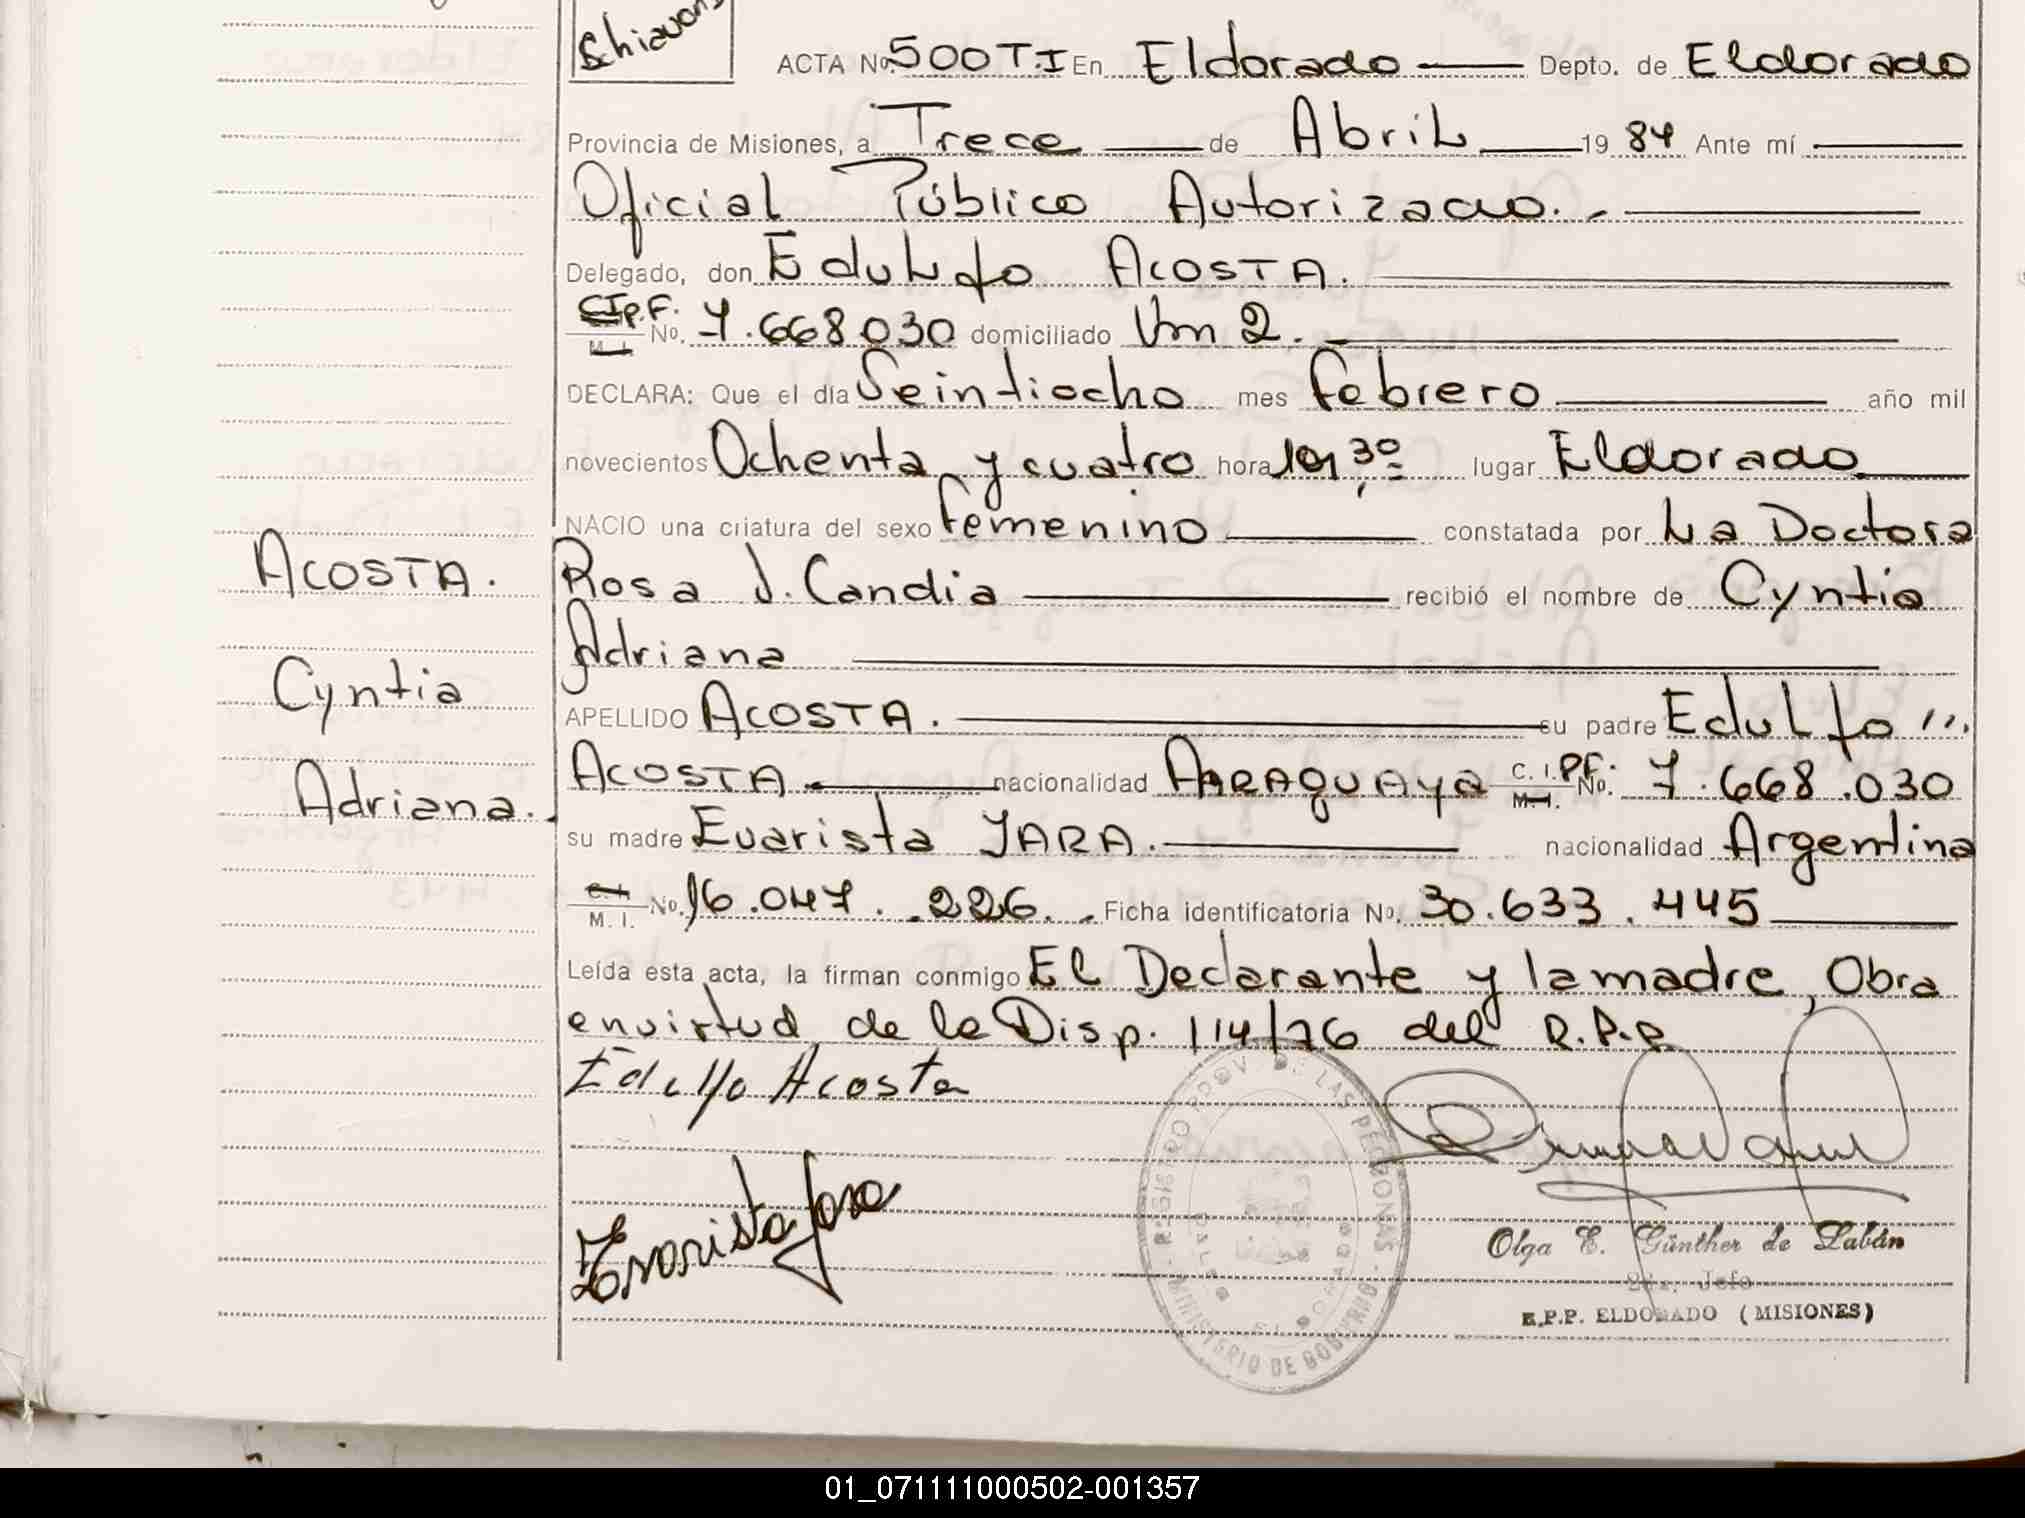 Schiavoni
ACTA No. 500 T.I En Eldorado Depto. de Eldorado
Provincia de Misiones, a Trece de Abril 19 84 Ante mí
Oficial Público Autorizado.-
Delegado, don Edulfo ACOSTA.
C.I.P.F.
M.I. No. 7.668.030 domiciliado Km 2.
DECLARA: Que el día Veintiocho mes Febrero año mil
novecientos Ochenta y cuatro hora lugar Eldorado
NACIO una criatura del sexo Femenino constatada por La Doctora
ACOSTA.
Rosa J. Candia recibió el nombre de Cyntia
Adriana
Cyntia
APELLIDO ACOSTA. su padre Edulfo ///
Adriana.
ACOSTA nacionalidad PARAGUAYA C.I.P.F. M.I. No. 7.668.030
su madre Evarista JARA. nacionalidad Argentina
C.I.
M.I. No. 16.047.226. Ficha identificatoria No. 30.633.445
Leída esta acta, la firman conmigo El Declarante y la madre, Obra
en virtud de la Disp. 114/76 del R.P.P.
Edulfo Acosta
Evarista Jara
REGISTRO PROV. DE LAS PERSONAS
MINISTERIO DE GOBIERNO
ELDORADO
Olga E. Günther de Labán
Jefe
R.P.P. ELDORADO (MISIONES)
01_071111000502-001357